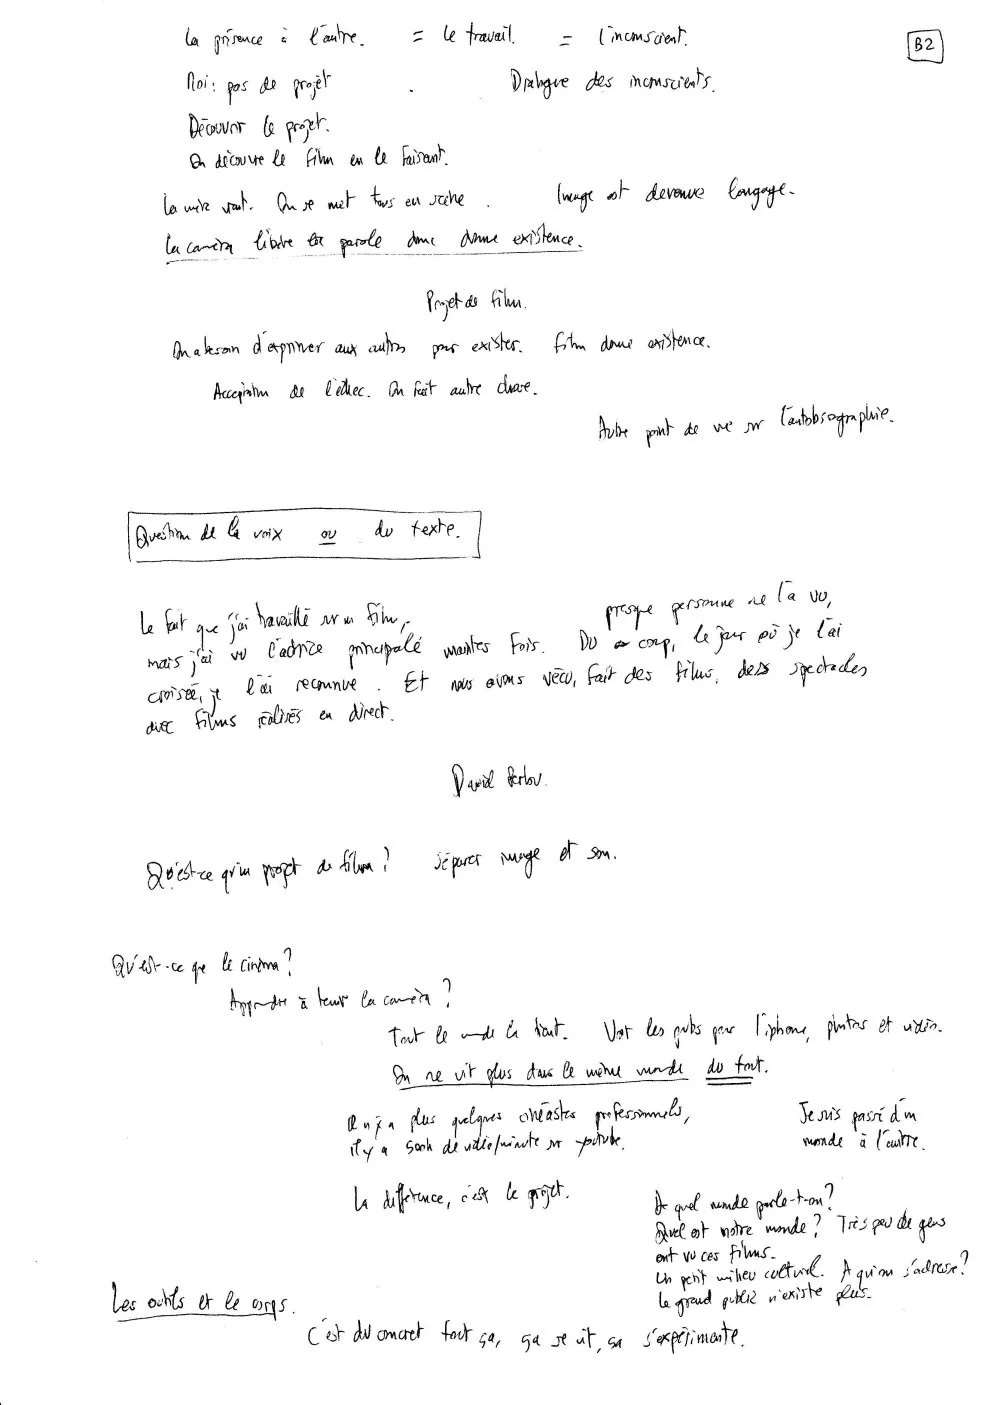 B2
La présence à l'autre. = le travail. = l'inconscient.
Moi : pas de projet . Dialogue des inconscients.
Découvrir le projet.
On découvre le film en le faisant.
La mère veut. On se met tous en scène. Image est devenue langage.
La caméra libère la parole donc donne existence.
Projet de film.
On a besoin d'exprimer aux autres pour exister. Film donne existence.
Acceptation de l'échec. On fait autre chose.
Autre point de vue sur l'autobiographie.
Question de la voix ou du texte.
Le fait que j'ai travaillé sur un film, presque personne ne l'a vu,
mais j'ai vu l'actrice principale maintes fois. Du coup, le jour où je l'ai
croisée, je l'ai reconnue. Et nous avons vécu, fait des films, des spectacles
avec films réalisés en direct.
David Perlov.
Qu'est-ce qu'un projet de film ? Séparer image et son.
Qu'est-ce que le cinéma ?
Apprendre à tenir la caméra ?
Tout le monde la tient. Voir les pubs pour l'iphone, photos et vidéo.
On ne vit plus dans le même monde du tout.
Il n'y a plus quelques cinéastes professionnels,
il y a 500h de vidéo/minute sur youtube.
Je suis passé d'un
monde à l'autre.
La différence, c'est le projet.
De quel monde parle-t-on ?
Quel est notre monde ? Très peu de gens
ont vu ces films.
Un petit milieu culturel. A qui on s'adresse ?
Le grand public n'existe plus.
Les outils et le corps.
C'est du concret tout ça, ça se vit, ça s'expérimente.